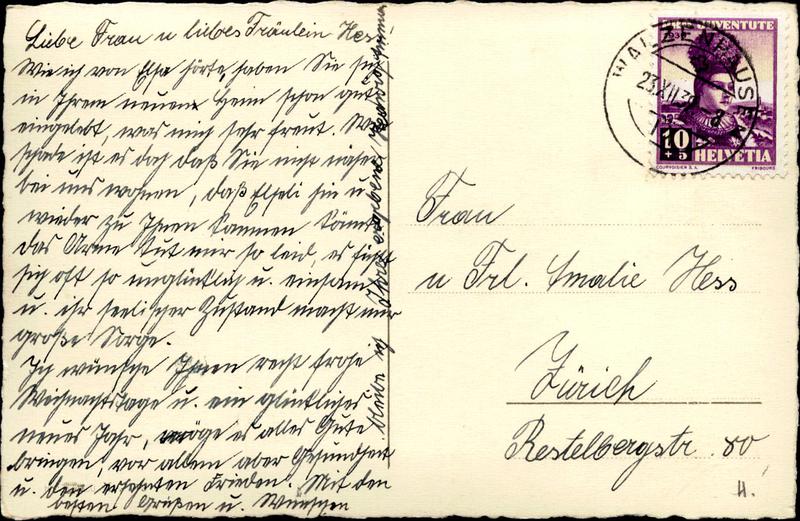 Liebe Frau u liebes Fräulein Hess
Wie ich von Elsa hörte, haben Sie sich
in Ihrem neuen Heim schon gut
eingelebt, was mich sehr freut. Wie
schade ist es doch daß Sie nicht näher
bei uns wohnen, daß Elseli hin u
wieder zu Ihnen kommen könnte
das Arme tut mir so leid, es fühlt
sich oft so unglücklich u. einsam
u. ihr seelischer Zustand macht mir
große Sorge.
Ich wünsche Ihnen recht frohe
Weihnachtstage u. ein glückliches
neues Jahr, möge es alles Gute
bringen, vor allem aber Gesundheit
u. den ersehnten Frieden. Mit den
besten Grüßen u. Wünschen
bleibe ich Ihre ergebene
WALZENHAUSEN
23.XII.39
PRO JUVENTUTE
1939
10
+5
HELVETIA
COURVOISIER S.A.
FRIBOURG
Frau
u Frl. Amalie Hess
Zürich
Restelbergstr. 80
H.